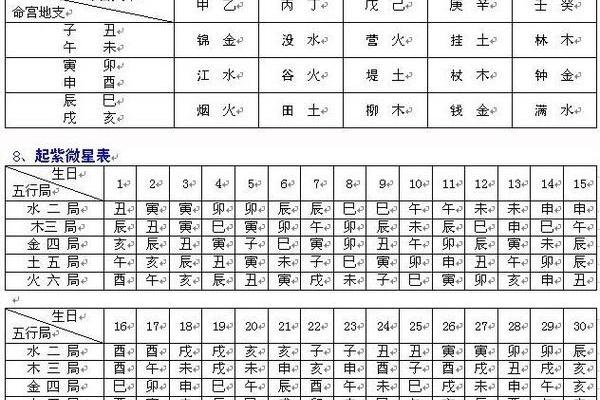 甲 乙 丙 丁 戊 己 庚 辛 壬 癸
命宫地支
子 丑
午 未
锦 金 没 水 营 火 挂 土 林 木
寅 卯
申 酉
江 水 谷 火 堤 土 杖 木 钟 金
辰 巳
戌 亥
烟 火 田 土 柳 木 钱 金 满 水
8、起紫微星表
生日
五行局
1 2 3 4 5 6 7 8 9 10 11 12 13 14 15
水 二 局 丑 寅 寅 卯 卯 辰 辰 巳 巳 午 午 未 未 申 申
木三 局 辰 丑 寅 巳 寅 卯 午 卯 辰 未 辰 巳 申 巳 午
金 四 局 亥 辰 丑 寅 子 巳 寅 卯 丑 午 卯 辰 寅 未 辰
土 五 局 午 亥 辰 丑 寅 未 子 巳 寅 卯 申 丑 午 卯 辰
火 六 局 酉 午 亥 辰 丑 寅 戌 未 子 巳 寅 卯 亥 申 丑
生日
五行局
16 17 18 19 20 21 22 23 24 25 26 27 28 29 30
水 二 局 酉 酉 戌 戌 亥 亥 子 子 丑 丑 寅 寅 卯 卯 辰
木 三 局 酉 午 未 戌 未 申 亥 申 酉 子 酉 戌 丑 戌 亥
金 四 局 巳 卯 申 巳 午 辰 酉 午 未 巳 戌 未 申 午 亥